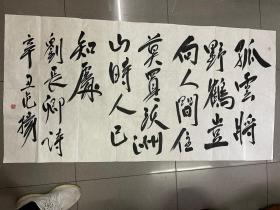 孤雲將
野鶴豈
向人間住
莫買沃洲
山時人已
知處
劉長卿詩
辛丑